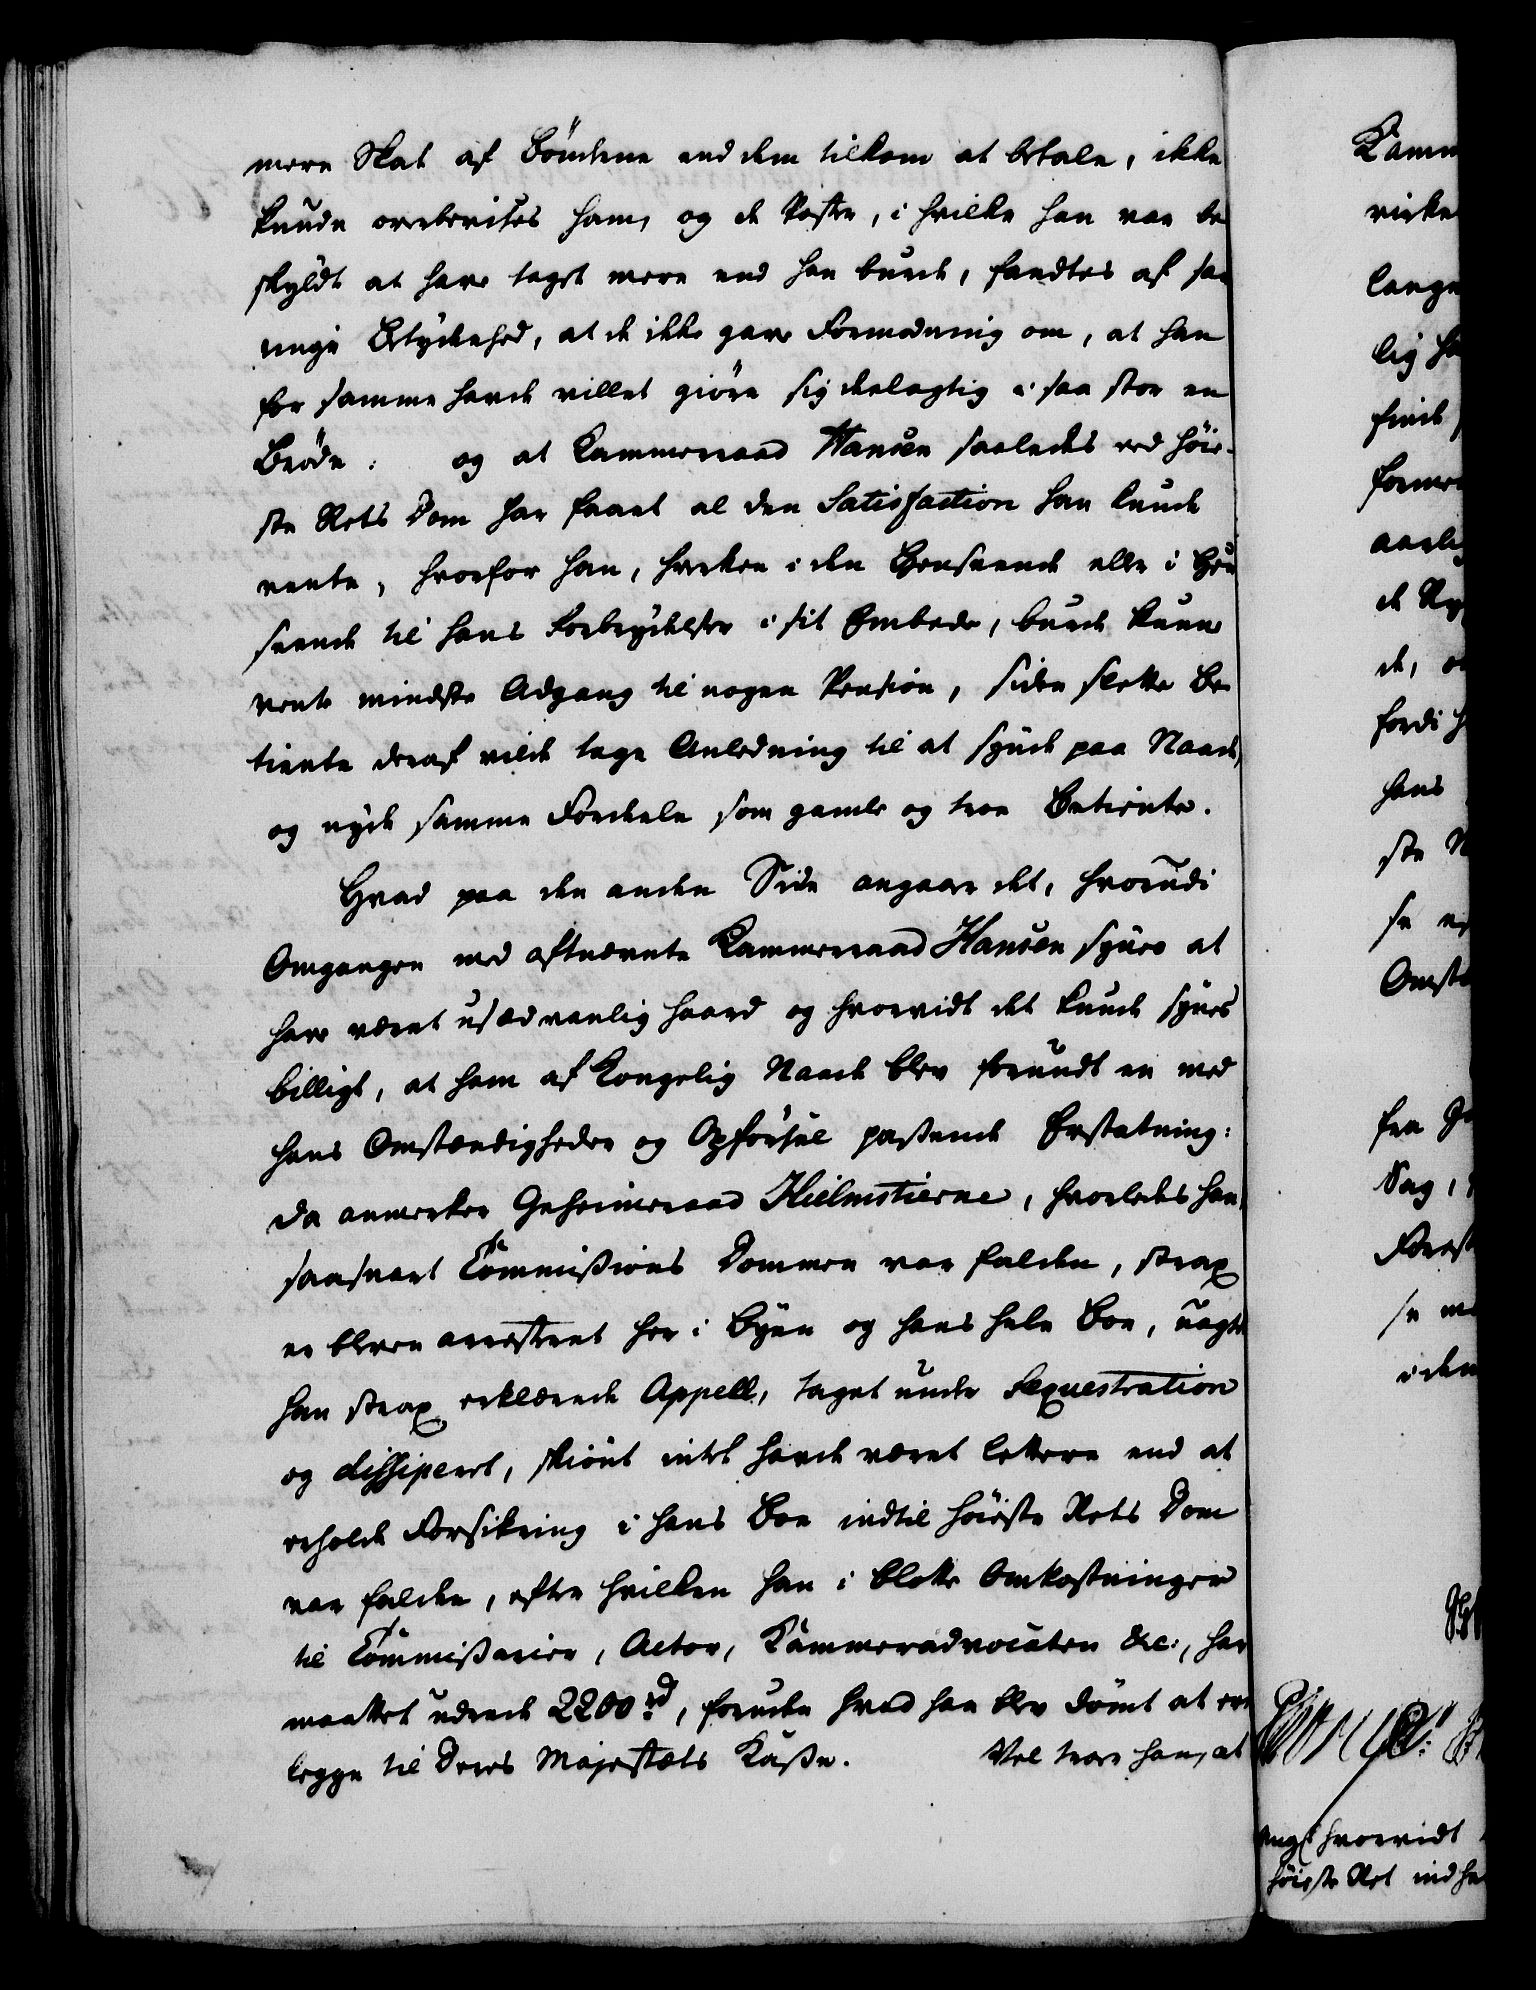 mere Skat af Bönderne end dem tilkom at betale, ikke
kunde overbevises ham, og de Poster, i hvilke han var be
skyldt at have taget mere end han burde, fandtes af saa
ringe Betydenhed, at de ikke gave Formodning om, at han
for samme havde villet giöre sig deelagtig i saa stor en
Bröde: og at Kammerraad Hansen saaledes ved Höie-
ste Rets Dom har faaet al den Satisfaction han kunde
vente, hvorfor han, hverken i den Henseende eller i Hen
seende til hans Forbrydelser i sit Embede, burde kunne
vente mindste Adgang til nogen Pension, siden slette Be
tiente deraf vilde tage Anledning til at synde paa Naade,
og nyde samme Fordeele som gamle og troe Betiente.
Hvad paa den anden Side angaaer det, hvorudi
Omgangen med oftnævnte Kammerraad Hansen synes at
have været usædvanlig haard og hvorvidt det kunde synes
billigt, at ham af Kongelig Naade blev forundt en med
hans Omstændigheder og Opförsel passende Erstatning:
da anmerker Geheimeraad Hielmstierne, hvorledes han,
saasnart Commissions Dommen var falden, strax
er bleven arresteret her i Byen og hans hele Boe, uagtet
han strax erklærede Appell, taget under Sequestration
og dissiperet, skiönt intet havde været lettere end at
erholde Forsikring i hans Boe indtil Höieste Rets Dom
var falden, efter hvilken han i blotte Omkostninger
til Commissarier, Actor, Kammeradvocaten &c:, har
maattet udrede 2200 rd, foruden hvad han blev dömt at er
legge til Deres Majestæts Kasse. Vel troer han, at